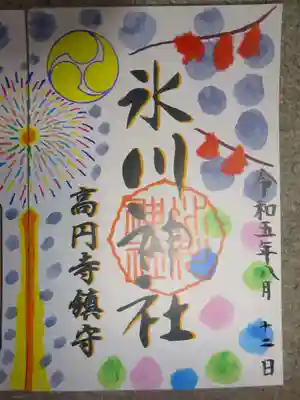 令和五年八月十二日
氷川神社
高円寺鎮守